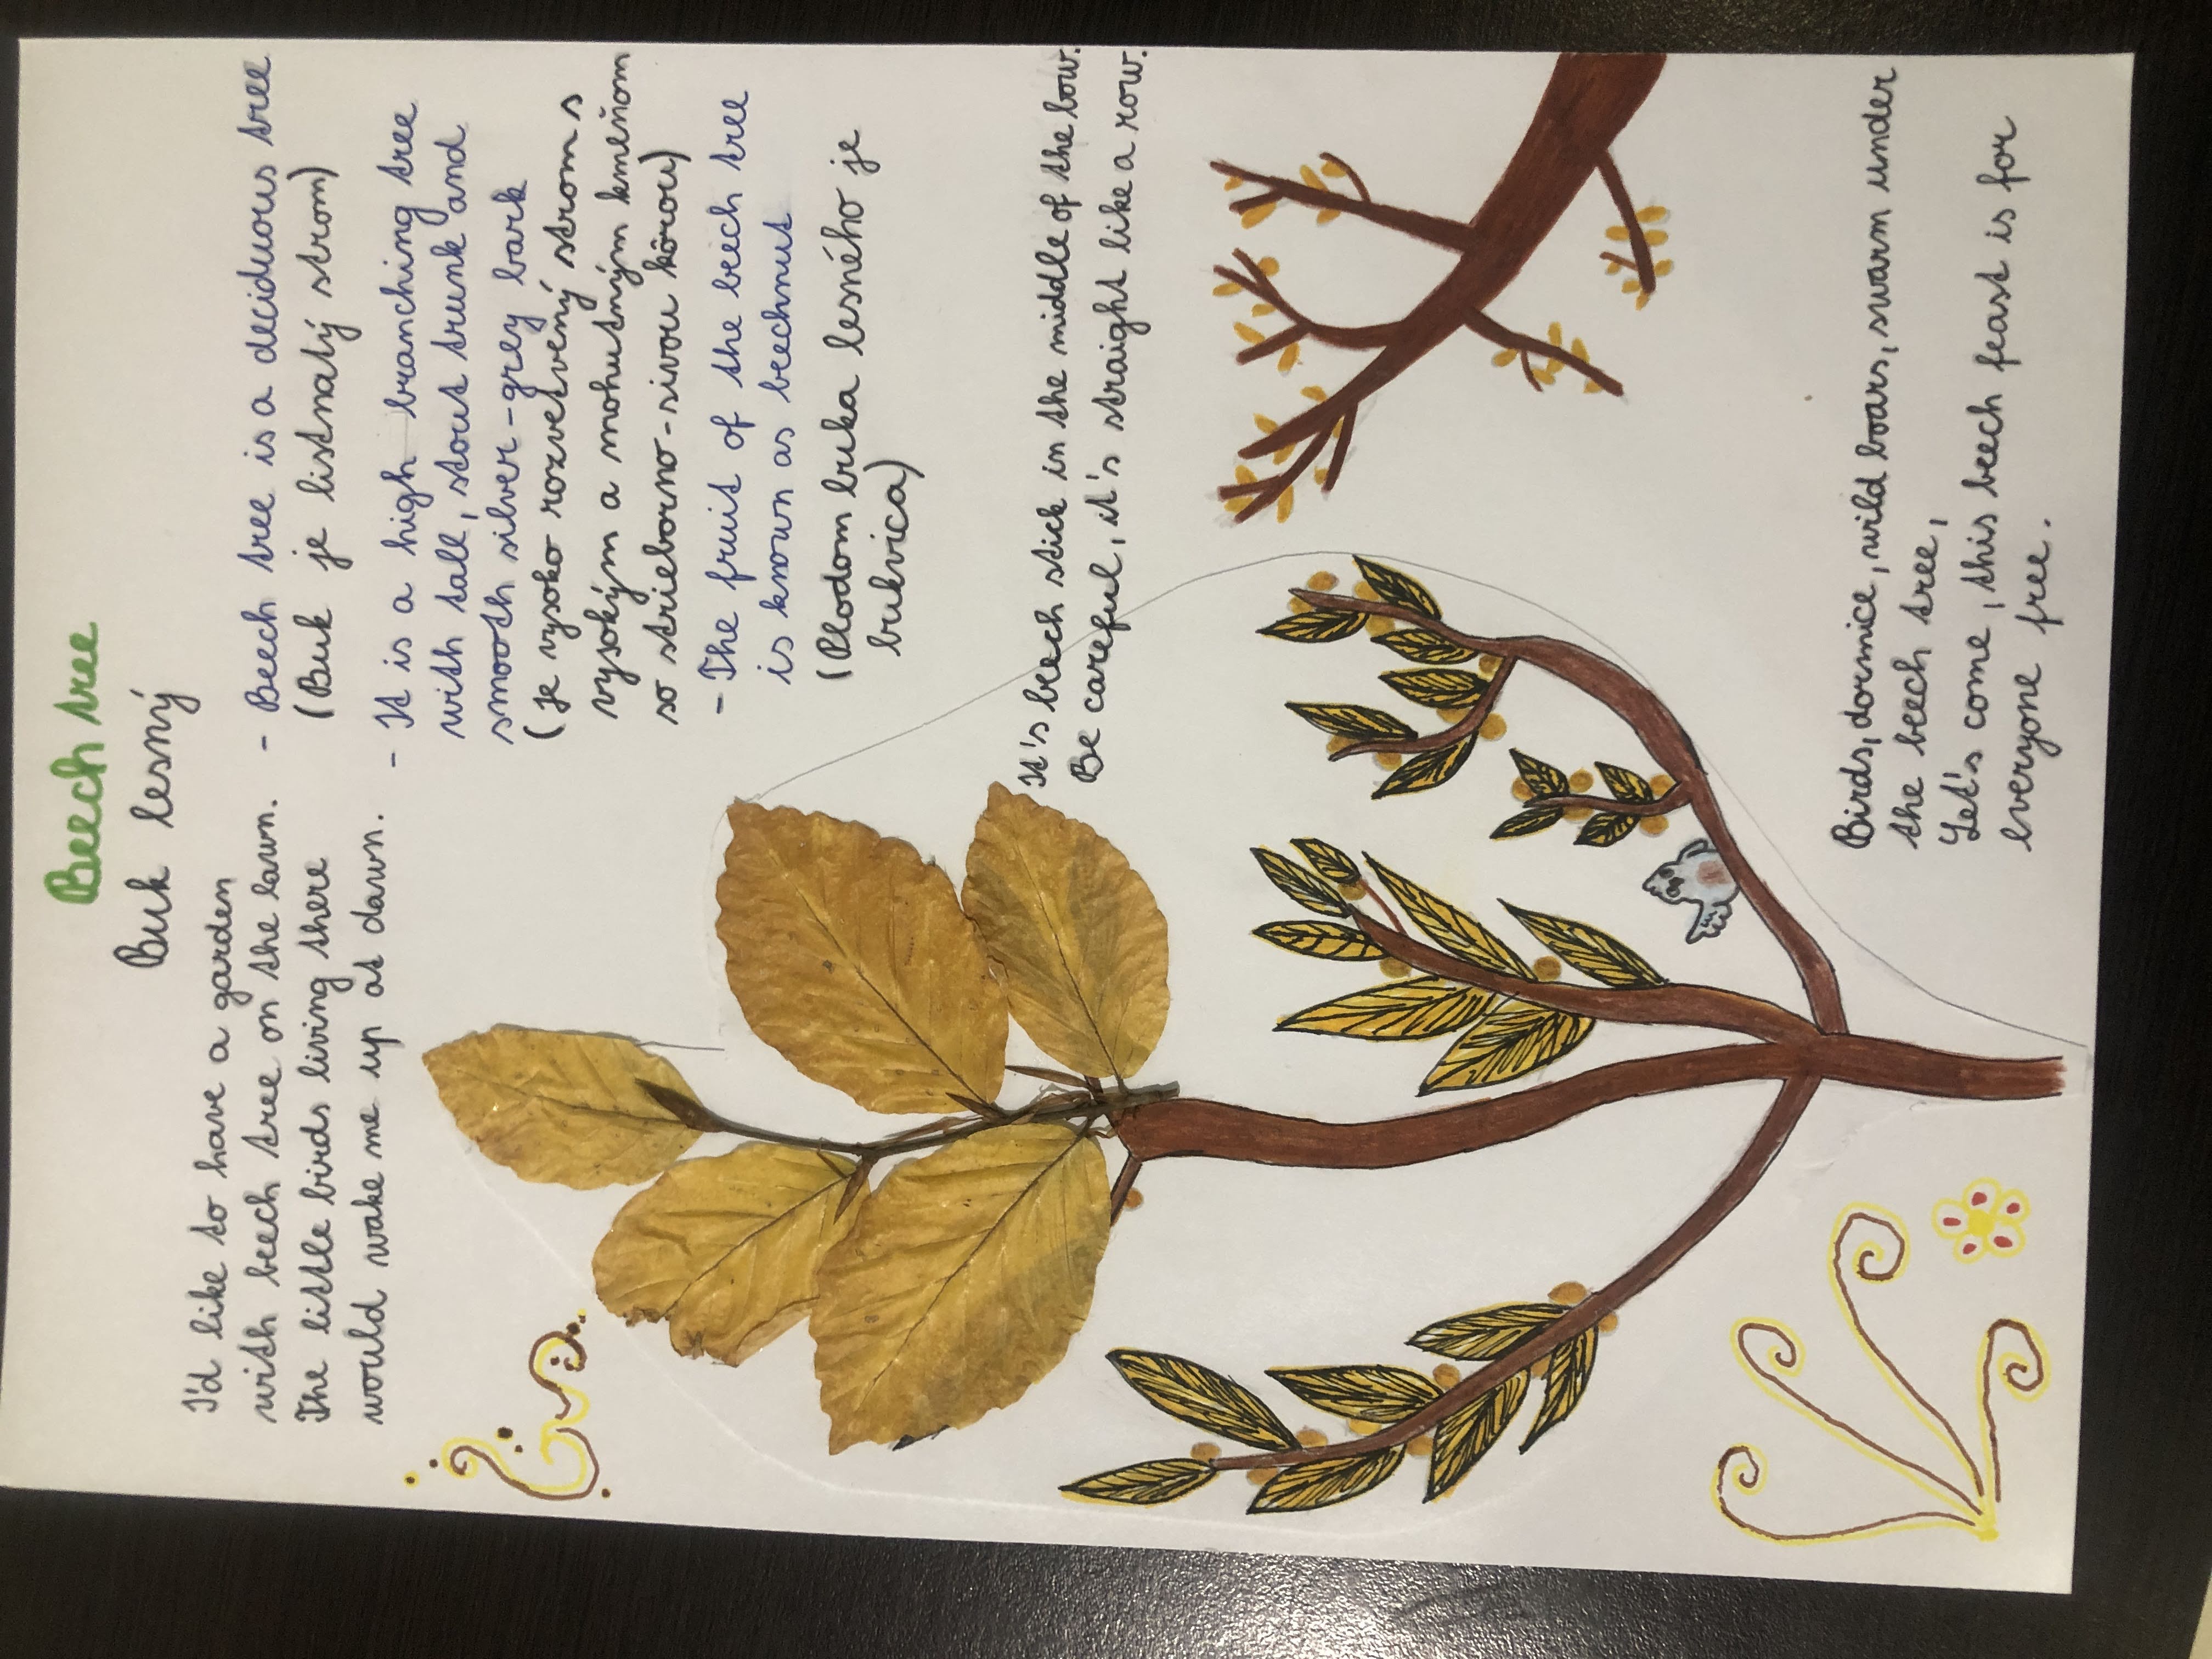 Beech tree
Buk lesný
I'd like to have a garden
with beech tree on the lawn.
The little birds living there
would wake me up at dawn.
- Beech tree is a deciduous tree
(Buk je listnatý strom)
- It is a high branching tree
with tall, stout trunk and
smooth silver-grey bark
(je vysoko rozvetvený strom s
vysokým a mohutným kmeňom
so strieborno-sivou kôrou)
- The fruit of the beech tree
is known as beechnut
(Plodom buka lesného je
bukvica)
It's beech stick in the middle of the bow.
Be careful, it's straight like a row.
Birds, dormice, wild boars, swarm under
the beech tree,
Let's come, this beech feast is for
everyone free.